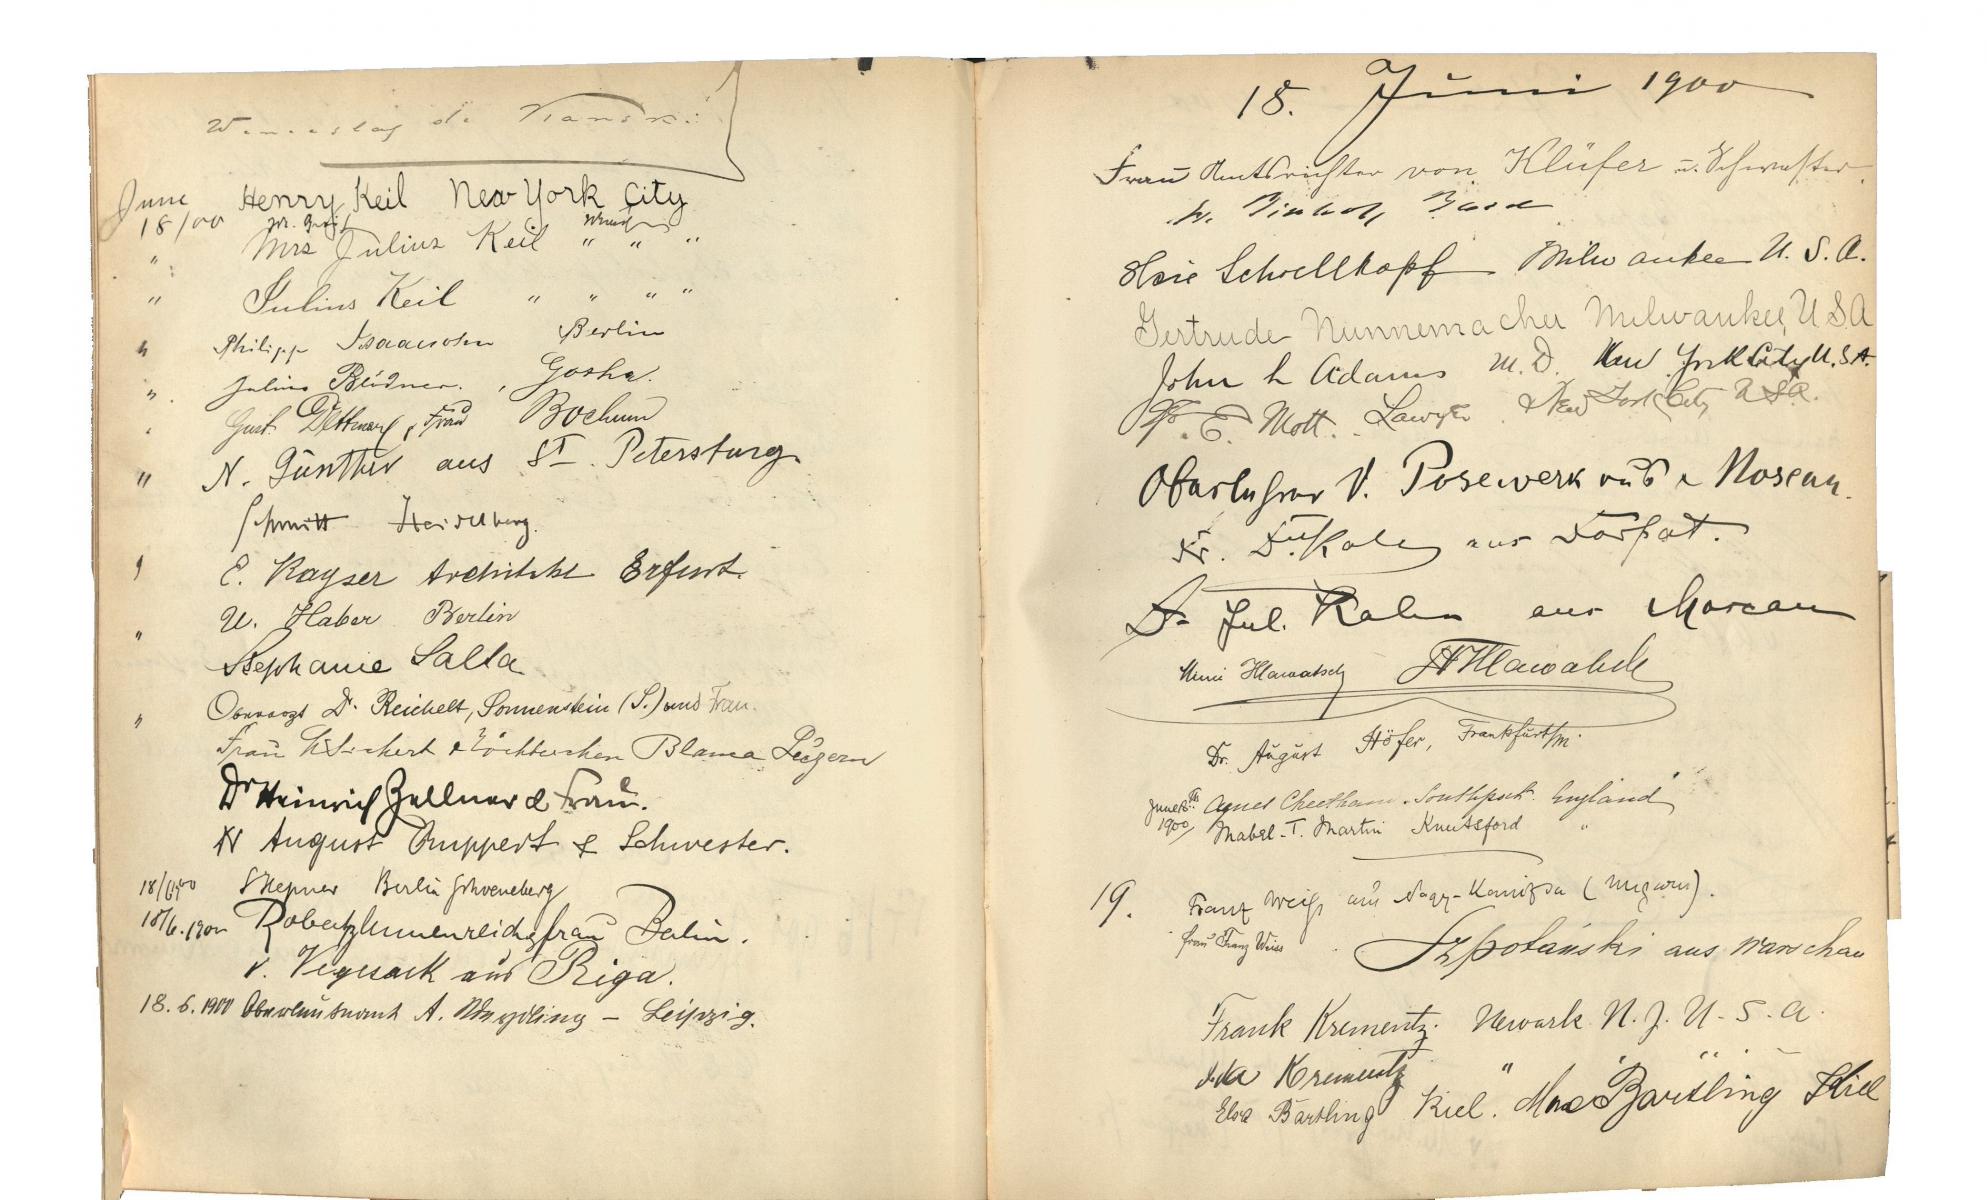 June
18/00 Henry Keil New York City
" Mrs Julius Keil " " "
" Julius Keil " " " "
" Philipp Isaacsohn Berlin
" Julius Gotha.
Gust. Dettmar, Frau Bochum
" N. Günther aus St. Petersburg.
Schmitt Heidelberg.
E. Kayser Architekt Erfurt.
U. Haber Berlin
" Stephanie Salta
" Oberarzt Dr. Reichelt, Sonnenstein (S.) und Frau.
Frau Töchterchen Blanca Luzern
Dr Heinrich Zellner & Frau.
Dr August Ruppert & Schwester.
18/6 00 Berlin Schoeneberg
18/6.1900 Berlin.
v. Vegesack aus Riga.
18. 6. 1900 A. – Leipzig.
18. Juni 1900
Frau Amtsrichter von Klüfer u. Schwester.
Elsie Schoellkopf Milwaukee U. S. A.
Gertrude Nunnemacher Milwaukee, U.S.A
John L Adams M. D. New York City U.S.A.
E. Mott. Lawyer. New York City U S A.
Oberlehrer V. Posewerk aus Moscau.
Dr. aus Dorpat.
Dr Jul. Kalm aus Moscau
Mimi Hlawatsch
Dr. August Höfer, Frankfurt/M.
June 18th Agnes Cheetham. Southport. England
1900/ Mabel T. Martin Knutsford "
19. Franz Weiss aus Nagy-Kanizsa (Ungarn).
Frau Franz Weiss
Szpotański aus Warschau
Frank Krementz. Newark N. J. U. S. A.
Ida Krementz " " "
Elsa Bartling Kiel. Max Bartling Kiel